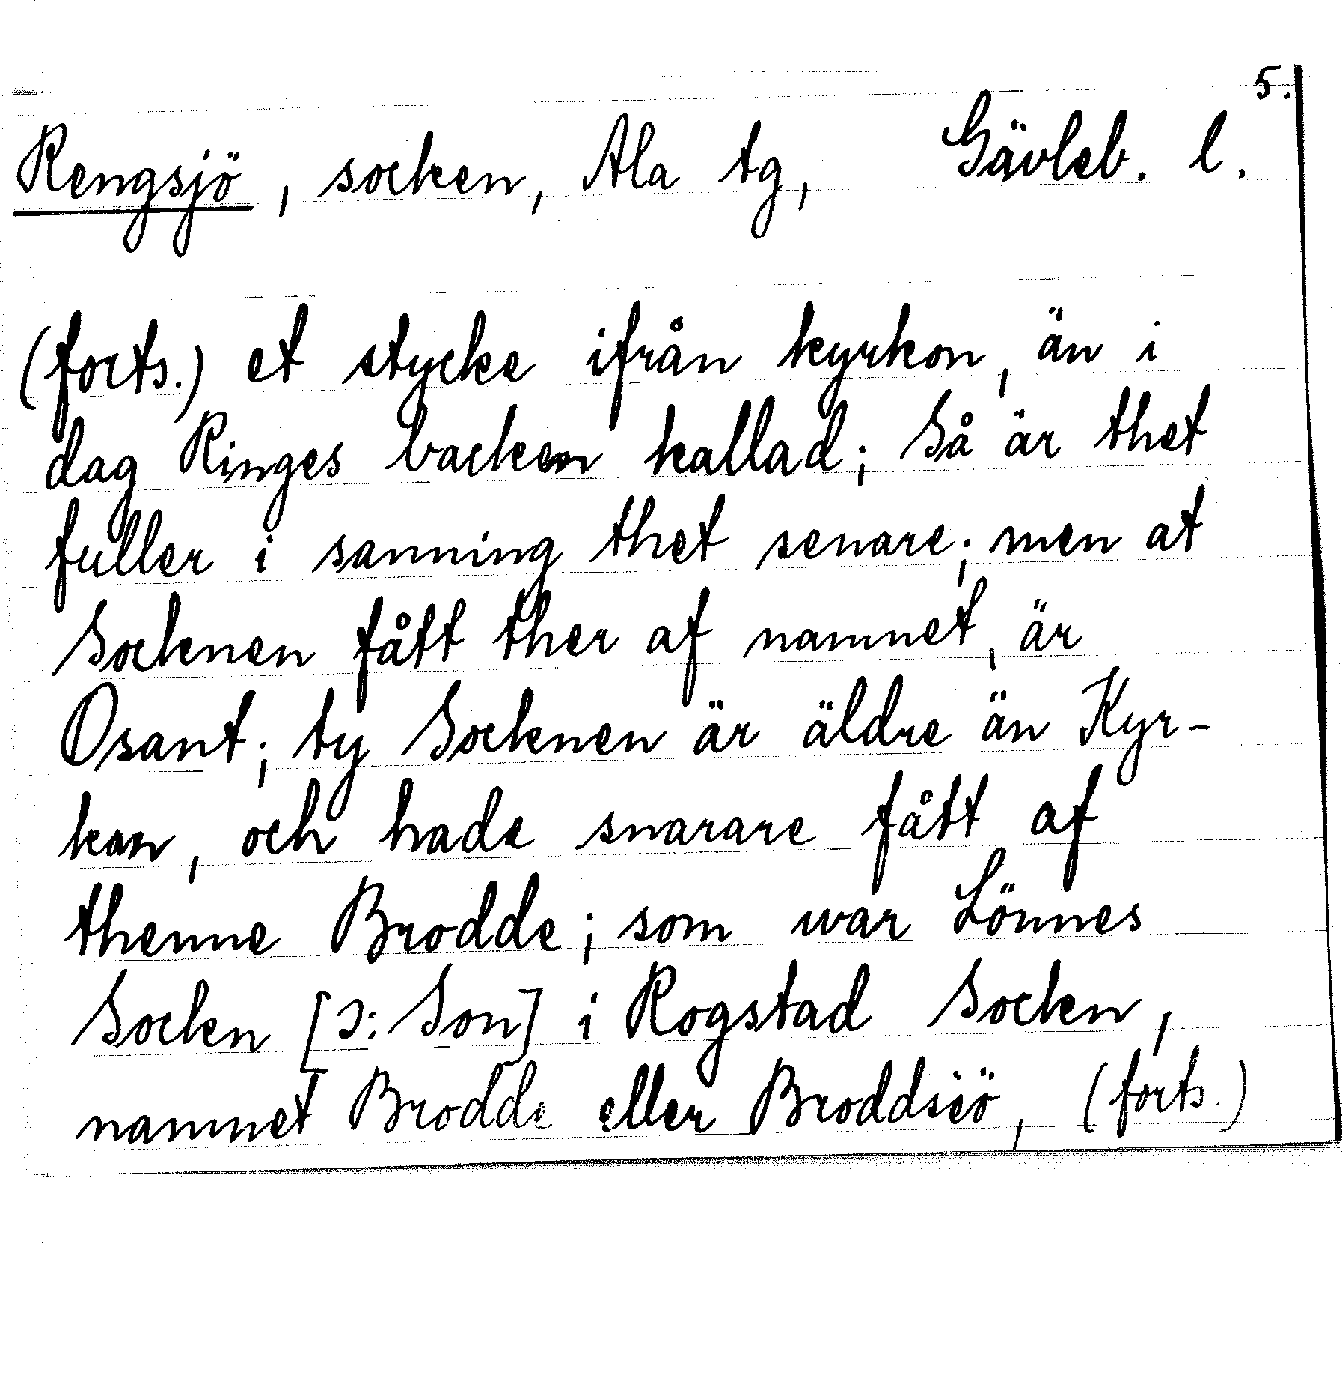 5.
Rengsjö, socken, Ala tg, Gävleb. l.
(forts.) et stycke ifrån kyrkon, än i
dag Ringes backen kallad; Så är thet
fuller i sanning thet senare; men at
Socknen fått ther af namnet, är
Osant; ty Socknen är äldre än Kyr-
kan, och hade snarare fått af
thenne Brodde; som war Lönnes
Socken [ɔ: Son] i Rogstad Socken,
namnet Brodde eller Broddsiö, (forts.)